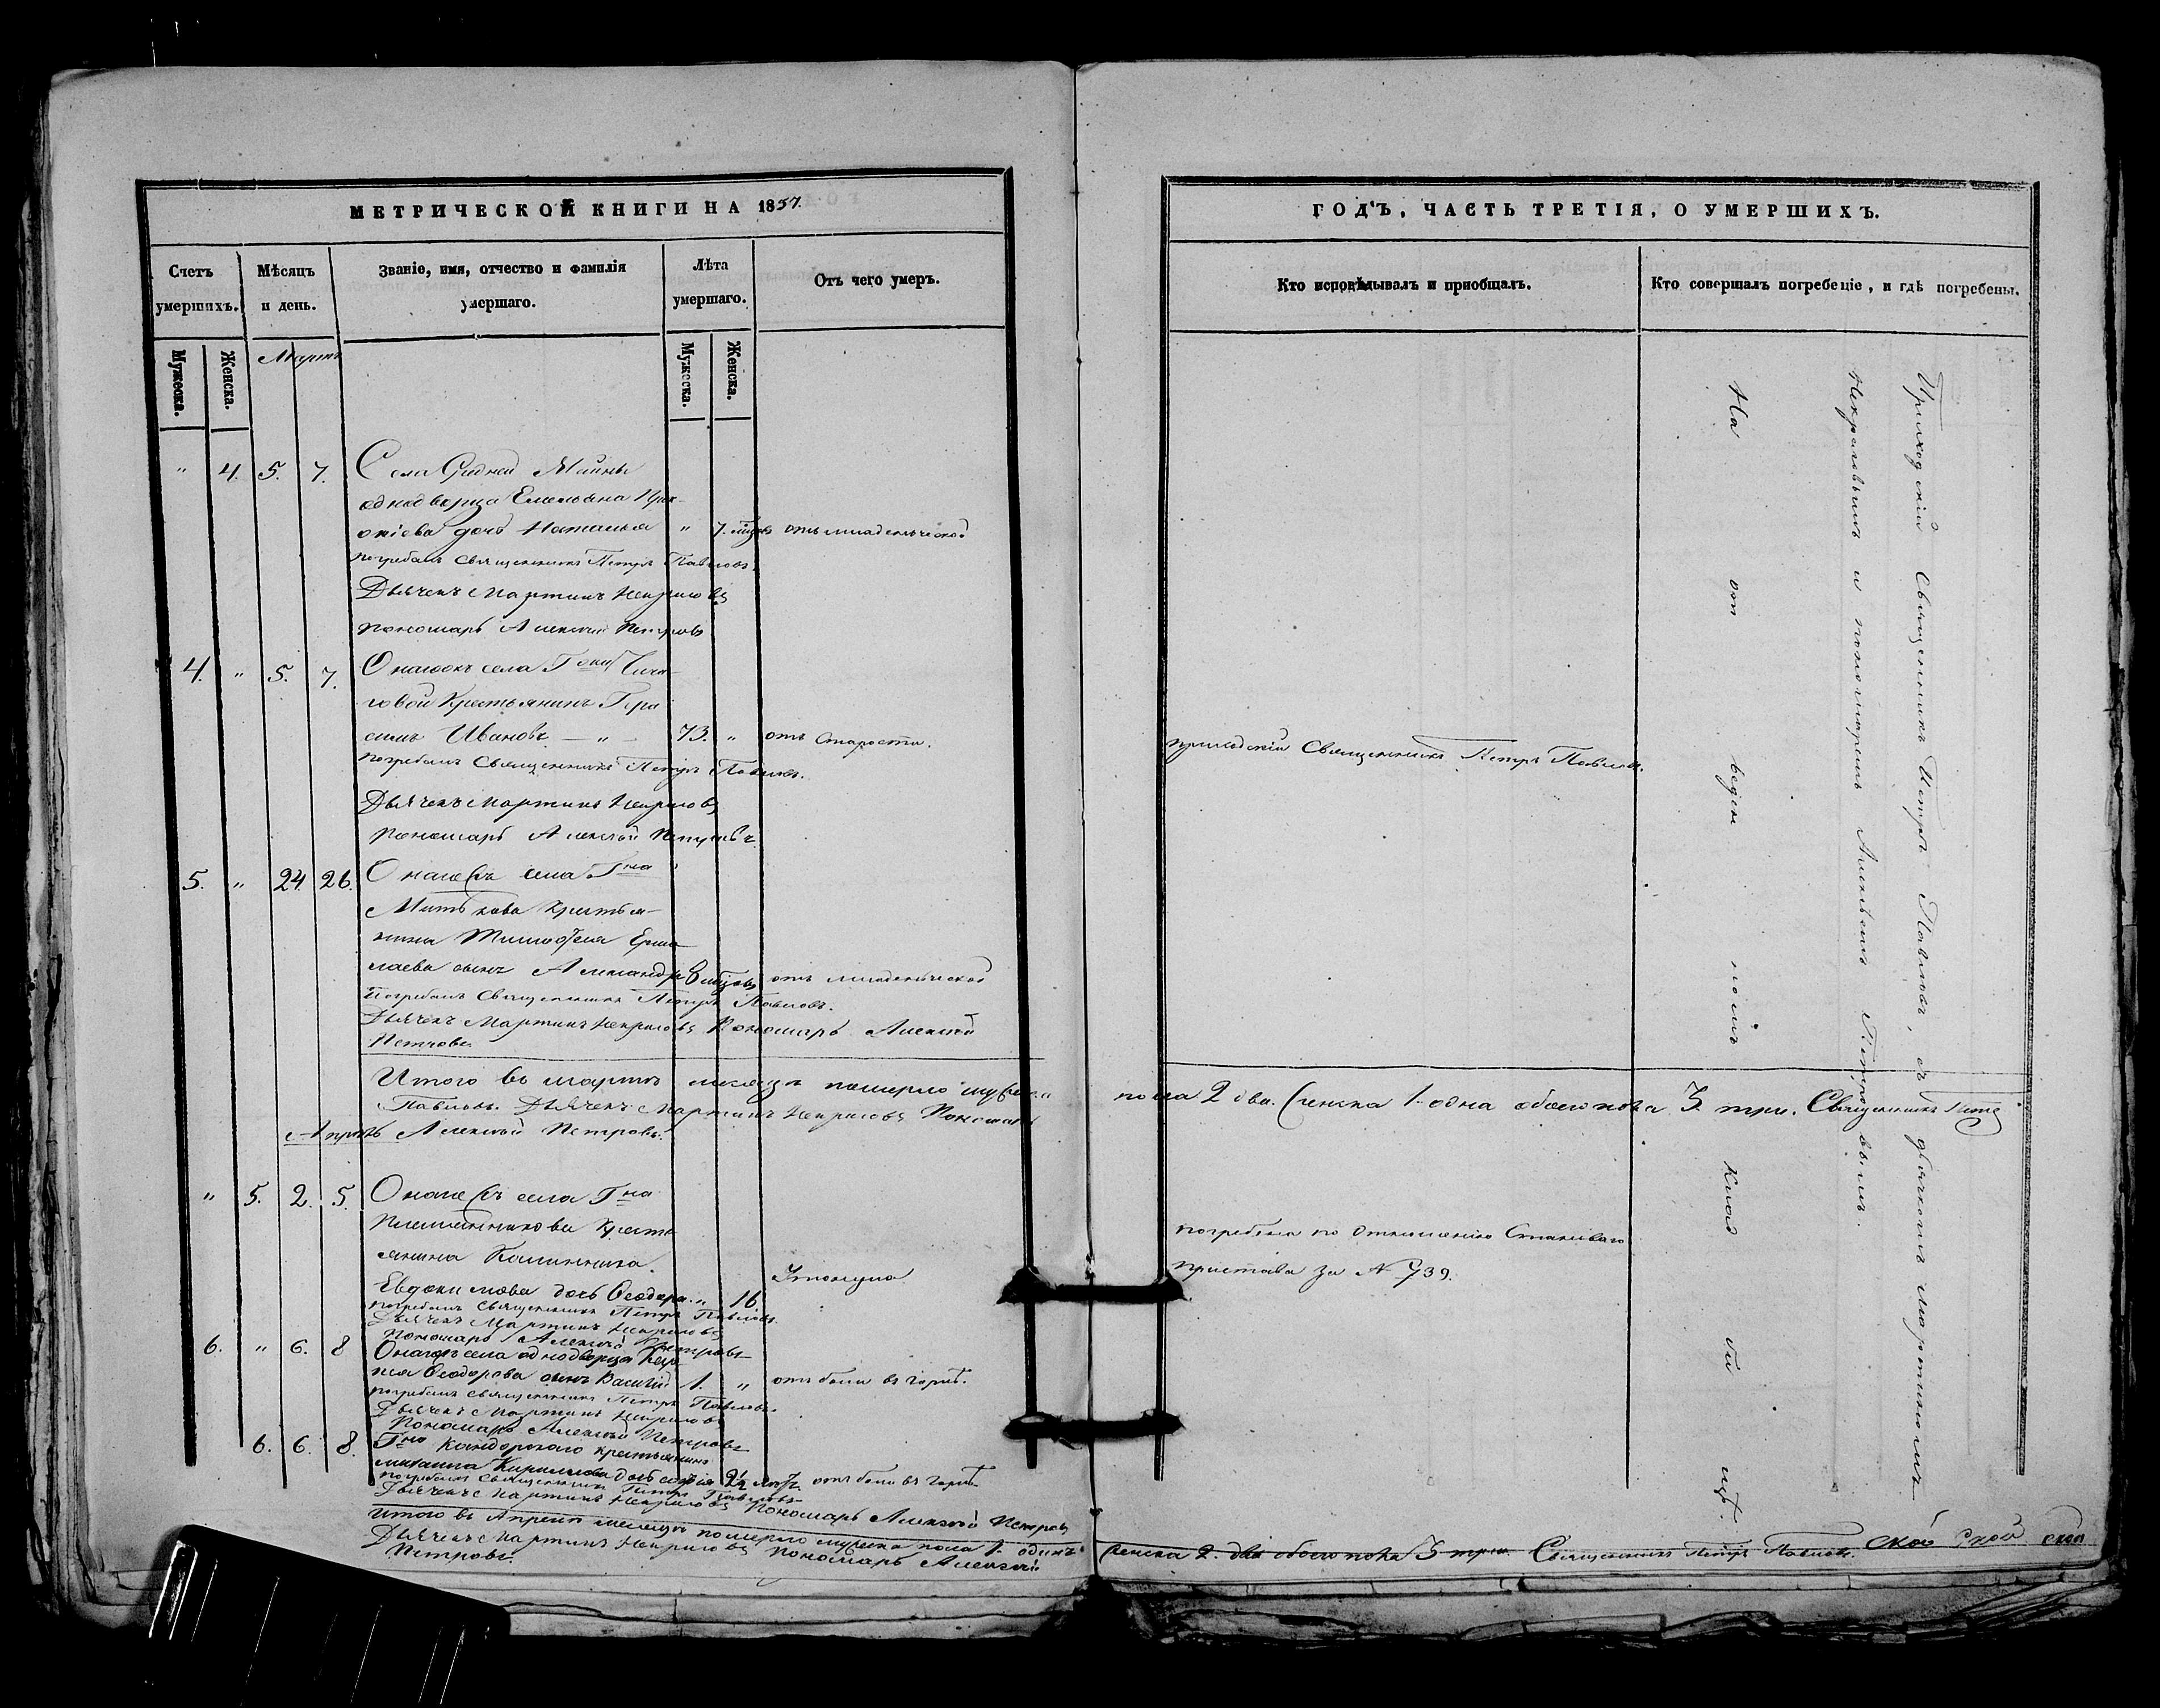 МЕТРИЧЕСКОЙ КНИГИ НА 1857.
Счетъ умершихъ.
Мѣсяцъ и день.
Званіе, имя, отчество и фамилія умершаго.
Лѣта умершаго.
Отъ чего умеръ.
Мужеска.
Женска.
Мартъ
Мужеска.
Женска.
" 4. 5. 7. Села
однодворца Емельяна Прок-
опіева дочь Наталья " 7. мѣцовъ отъ младенческой
погребалъ Священникъ Петръ Павловъ.
Дьячекъ Мартинъ Некрасовъ
пономарь Алексѣй Петровъ
4. " 5. 7. села
Крестьянинъ Гера
симъ Ивановъ — " — 73. " отъ старости.
погребалъ Священникъ Петръ Павловъ.
Дьячекъ Мартинъ Некрасовъ
пономарь Алексѣй Петровъ.
5. " 24. 26. села Гна
Митькова Крестья-
нина Тимофея Ермо
лаева сынъ Александръ 8 мѣцовъ отъ младенческой
погребалъ Священникъ Петръ Павловъ.
Дьячекъ Мартинъ Некрасовъ Пономарь Алексѣй
Петровъ.
Итого въ мартѣ мѣсяцѣ померло мужеска
Павловъ. Дьячекъ Мартинъ Некрасовъ Пономарь
Апрѣль Алексѣй Петровъ.
" 5. 2. 5. села Гна
Крестья
янина Калинника
Евдокимова дочь Ѳеодора. " 16. Утонула
погребалъ Священникъ Петръ Павловъ.
Дьячекъ Мартинъ Некрасовъ
пономарь Алексѣй Петровъ
6. " 6. 8 села однодворца
Ѳеодорова сынъ Василій 1. " отъ боли въ горлѣ.
погребалъ Священникъ Петръ Павловъ.
Дьячекъ Мартинъ Некрасовъ
Пономарь Алексѣй Петровъ
6. 6. 8. Гна крестьянина
Михаила Кириллова дочь 2½ отъ боли въ горлѣ
погребалъ Священникъ Петръ Павловъ
Дьячекъ Мартинъ Некрасовъ Пономарь Алексѣй Петровъ
Итого въ Апрелѣ месяцѣ померло мужеска пола 1. одинъ
Дьячекъ Мартинъ Некрасовъ Пономарь Алексѣй
Петровъ.
ГОДЪ, ЧАСТЬ ТРЕТІЯ, О УМЕРШИХЪ.
Кто исповѣдывалъ и пріобщалъ.
Кто совершалъ погребеніе, и гдѣ погребены.
приходскій Священникъ Петръ Павловъ.
пола 2 два. Женска 1. одна обоего пола 3. три. Священникъ Петръ
погребена по отношенію Становаго
пристава за № 739.
женска 2. два обоего пола 3 три. Священникъ Петръ Павловъ.
Приходскій Священникъ Петръ Павловъ, съ дьячкомъ Мартиномъ
Некрасовымъ и пономаремъ Алексѣемъ Петровымъ.
На от веден номъ клад би щѣ.